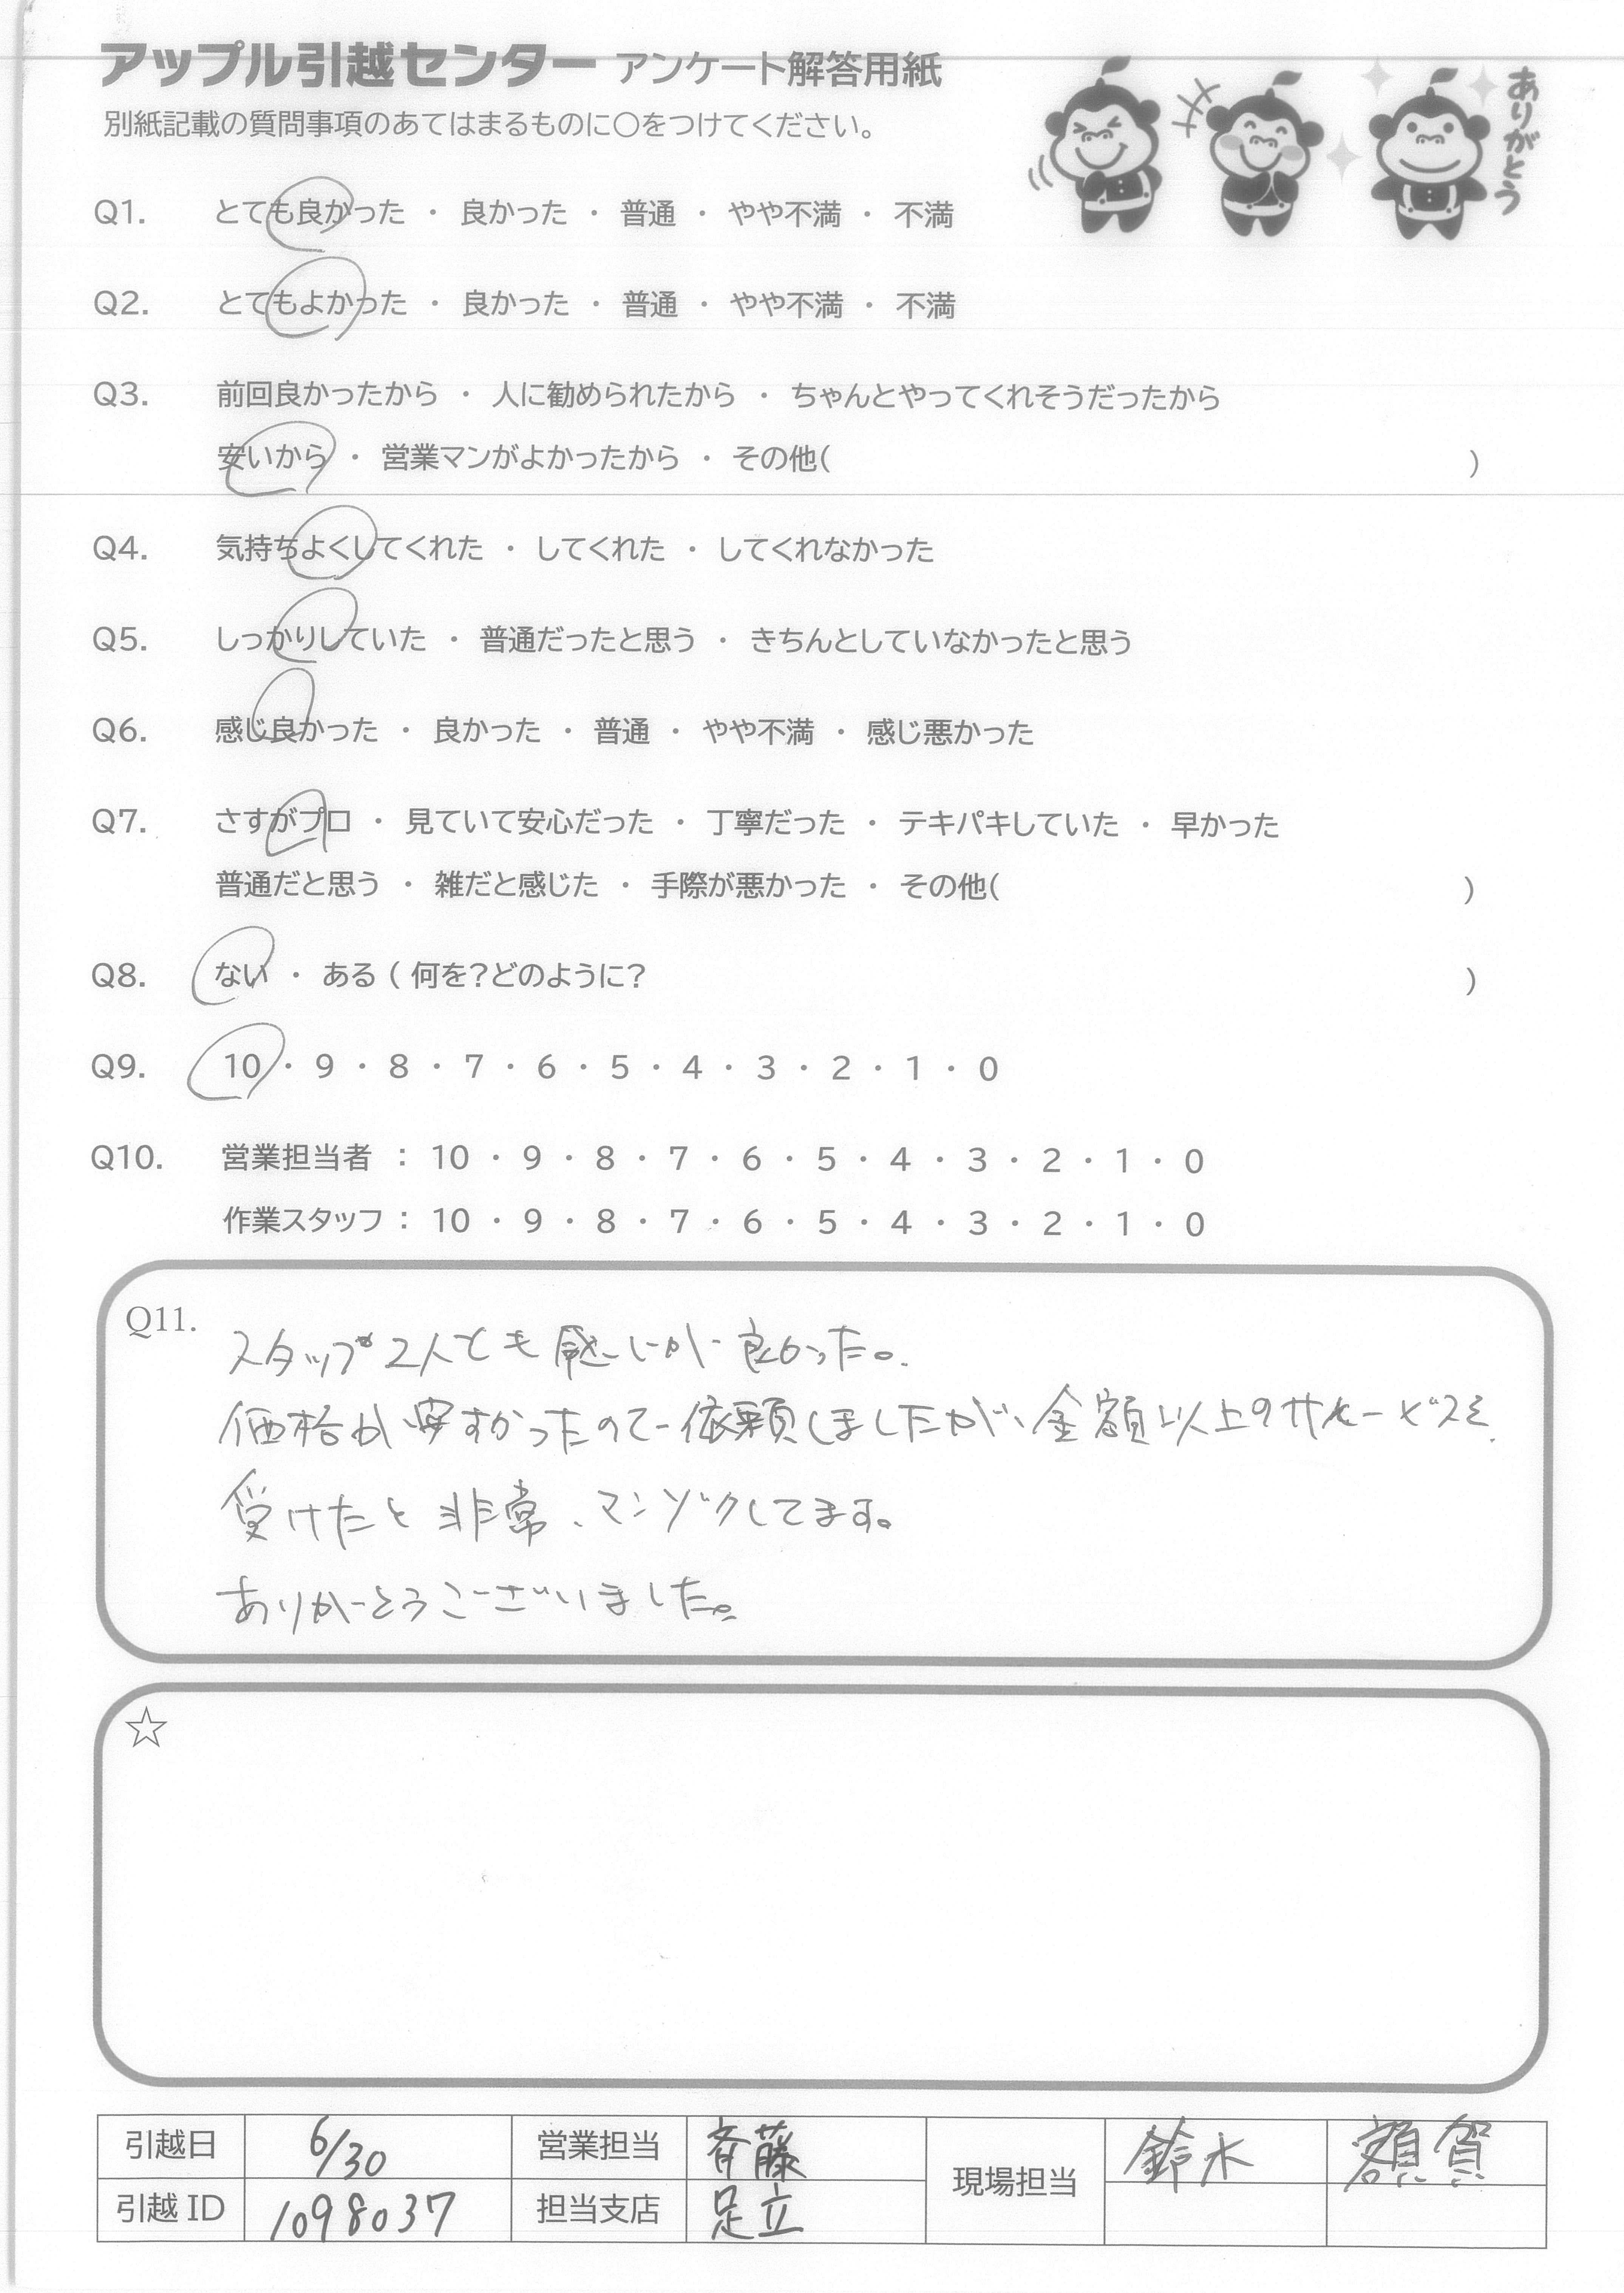 アップル引越センター アンケート解答用紙
ありがとう
別紙記載の質問事項のあてはまるものに○をつけてください。
Q1. とても良かった ・ 良かった ・ 普通 ・ やや不満 ・ 不満
Q2. とてもよかった ・ 良かった ・ 普通 ・ やや不満 ・ 不満
Q3. 前回良かったから ・ 人に勧められたから ・ ちゃんとやってくれそうだったから
安いから ・ 営業マンがよかったから ・ その他( )
Q4. 気持ちよくしてくれた ・ してくれた ・ してくれなかった
Q5. しっかりしていた ・ 普通だったと思う ・ きちんとしていなかったと思う
Q6. 感じ良かった ・ 良かった ・ 普通 ・ やや不満 ・ 感じ悪かった
Q7. さすがプロ ・ 見ていて安心だった ・ 丁寧だった ・ テキパキしていた ・ 早かった
普通だと思う ・ 雑だと感じた ・ 手際が悪かった ・ その他( )
Q8. ない ・ ある ( 何を?どのように? )
Q9. 10 ・ 9 ・ 8 ・ 7 ・ 6 ・ 5 ・ 4 ・ 3 ・ 2 ・ 1 ・ 0
Q10. 営業担当者 : 10 ・ 9 ・ 8 ・ 7 ・ 6 ・ 5 ・ 4 ・ 3 ・ 2 ・ 1 ・ 0
作業スタッフ : 10 ・ 9 ・ 8 ・ 7 ・ 6 ・ 5 ・ 4 ・ 3 ・ 2 ・ 1 ・ 0
Q11. スタッフ2人とも感じが良かった。
価格が安すかったので依頼しましたが、金額以上のサービスを
受けたと非常、マンゾクしてます。
ありがとうございました。
☆
引越日 6/30 営業担当 斉藤 現場担当 鈴木 額賀
引越ID 1098037 担当支店 足立